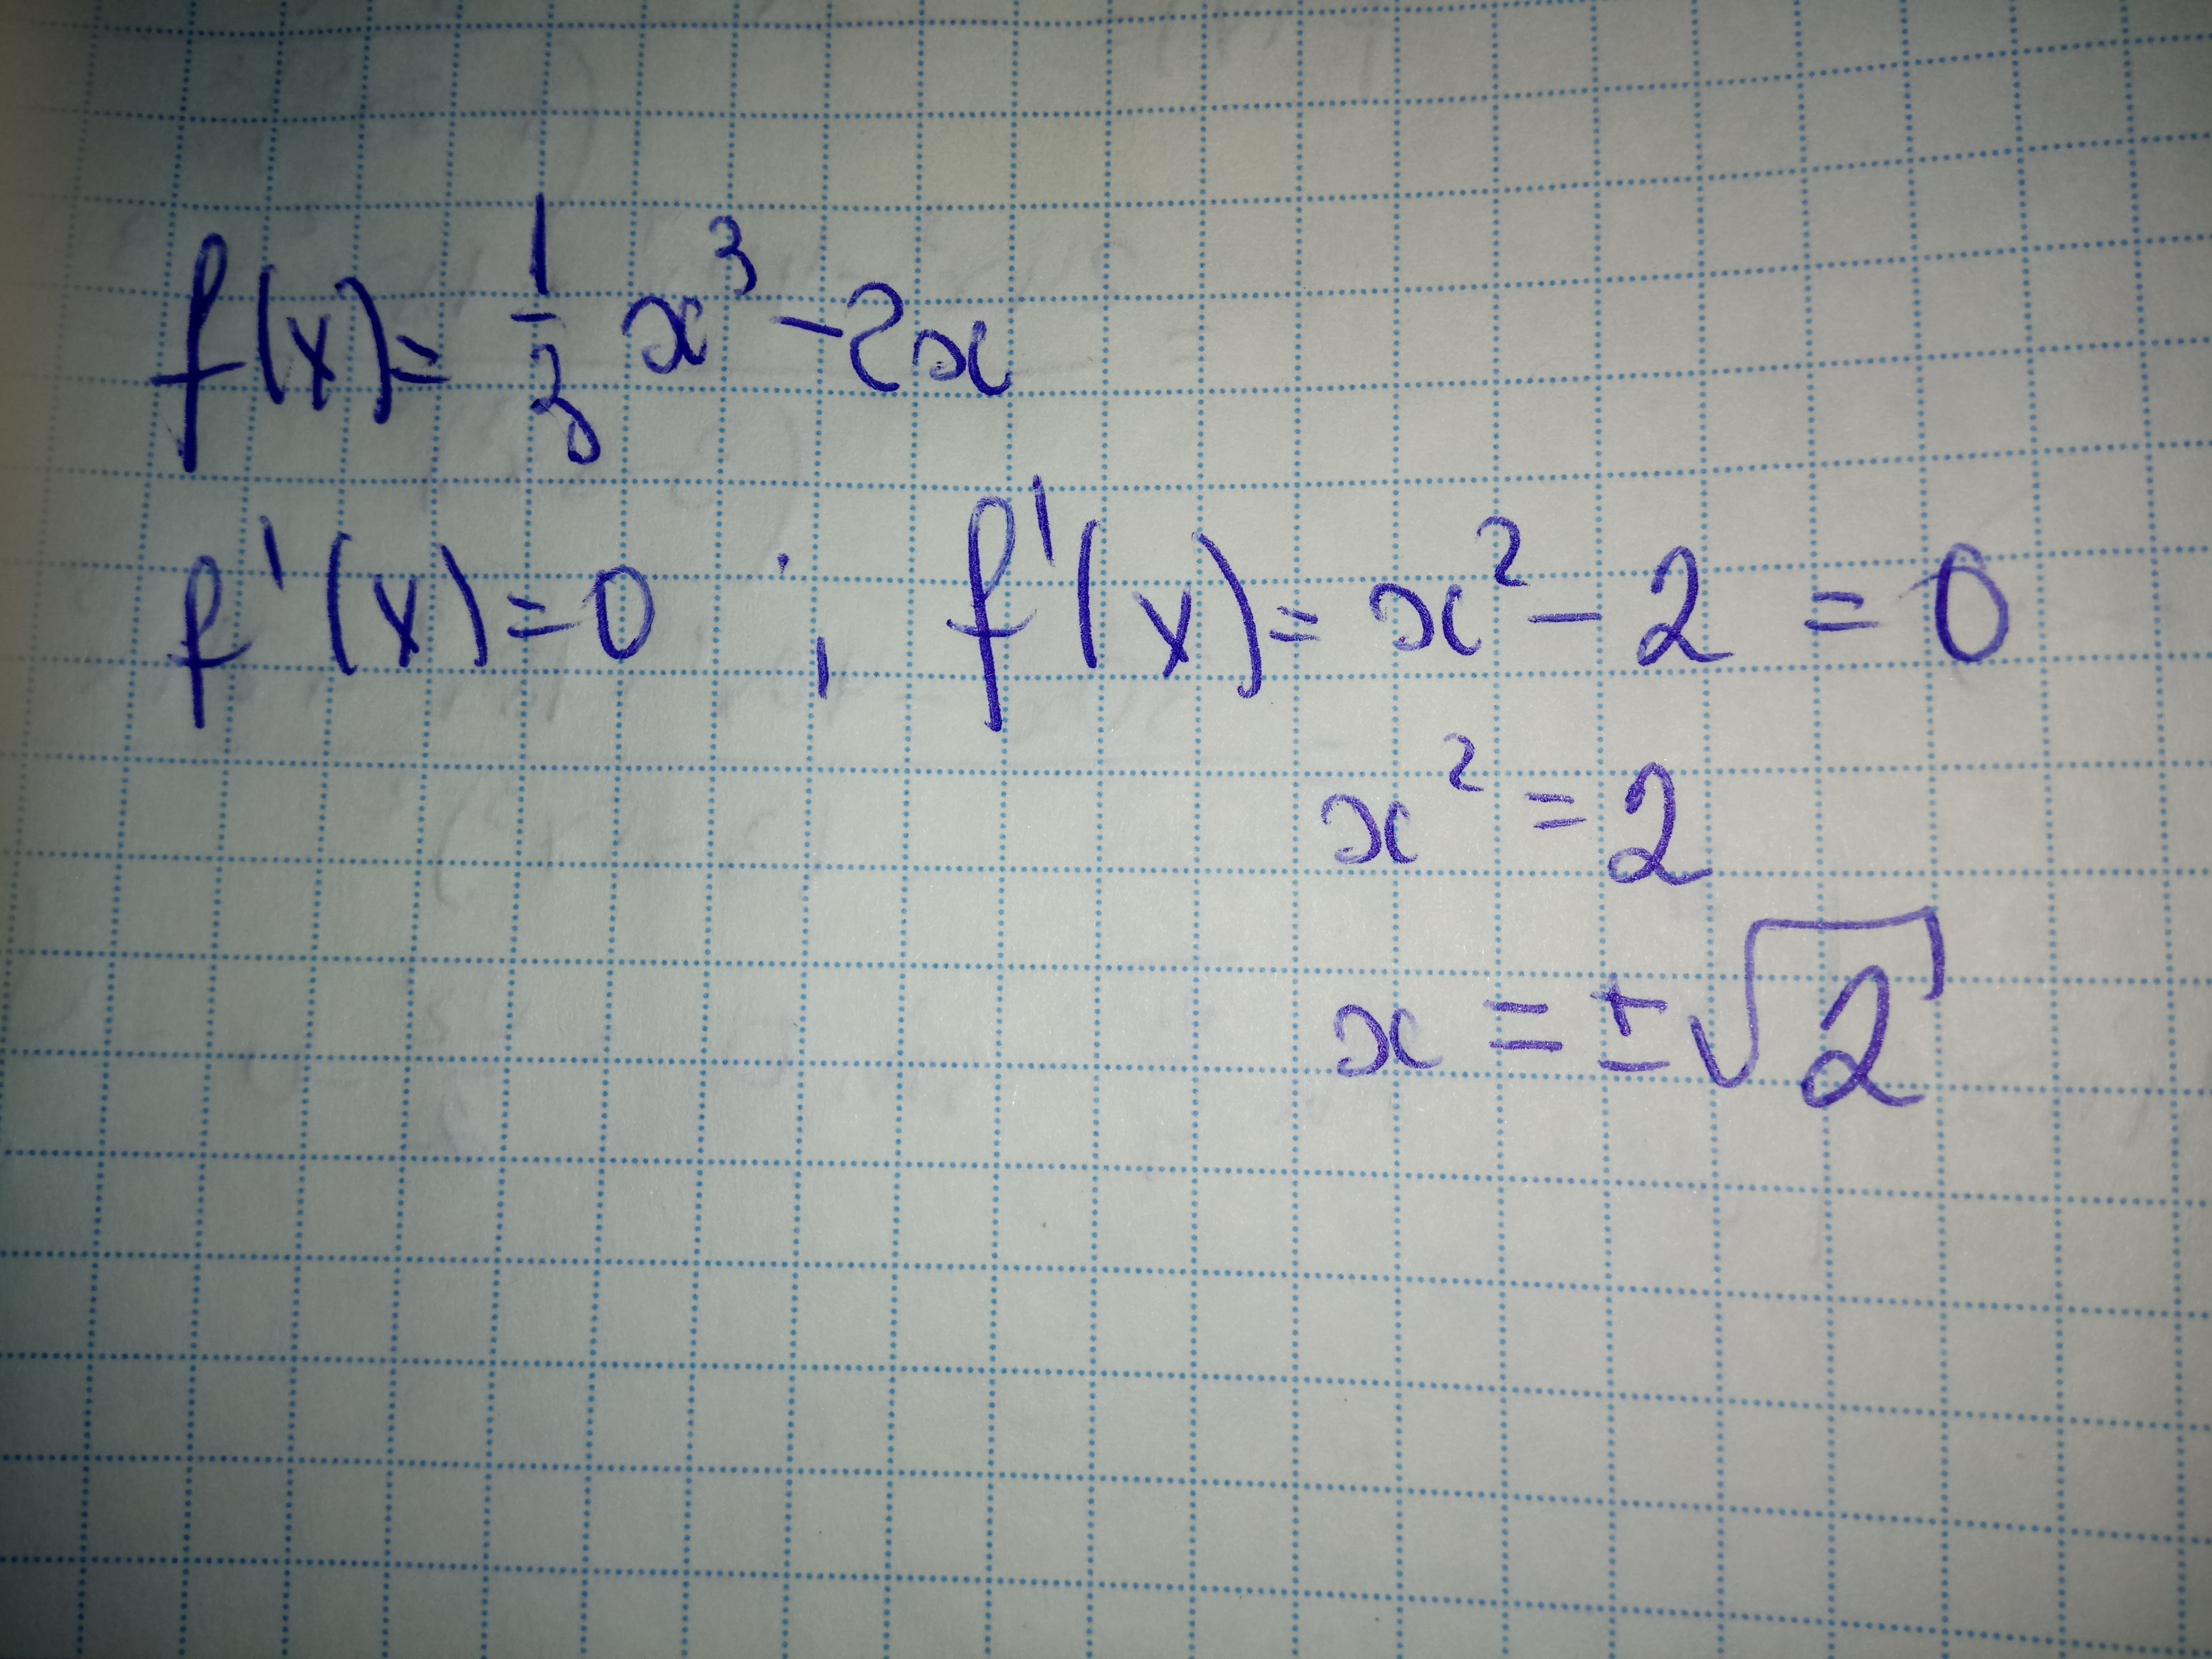 f(x)= 1/3 x³ -2x
f'(x)=0 ; f'(x)= x² - 2 = 0
x² = 2
x = ±√2